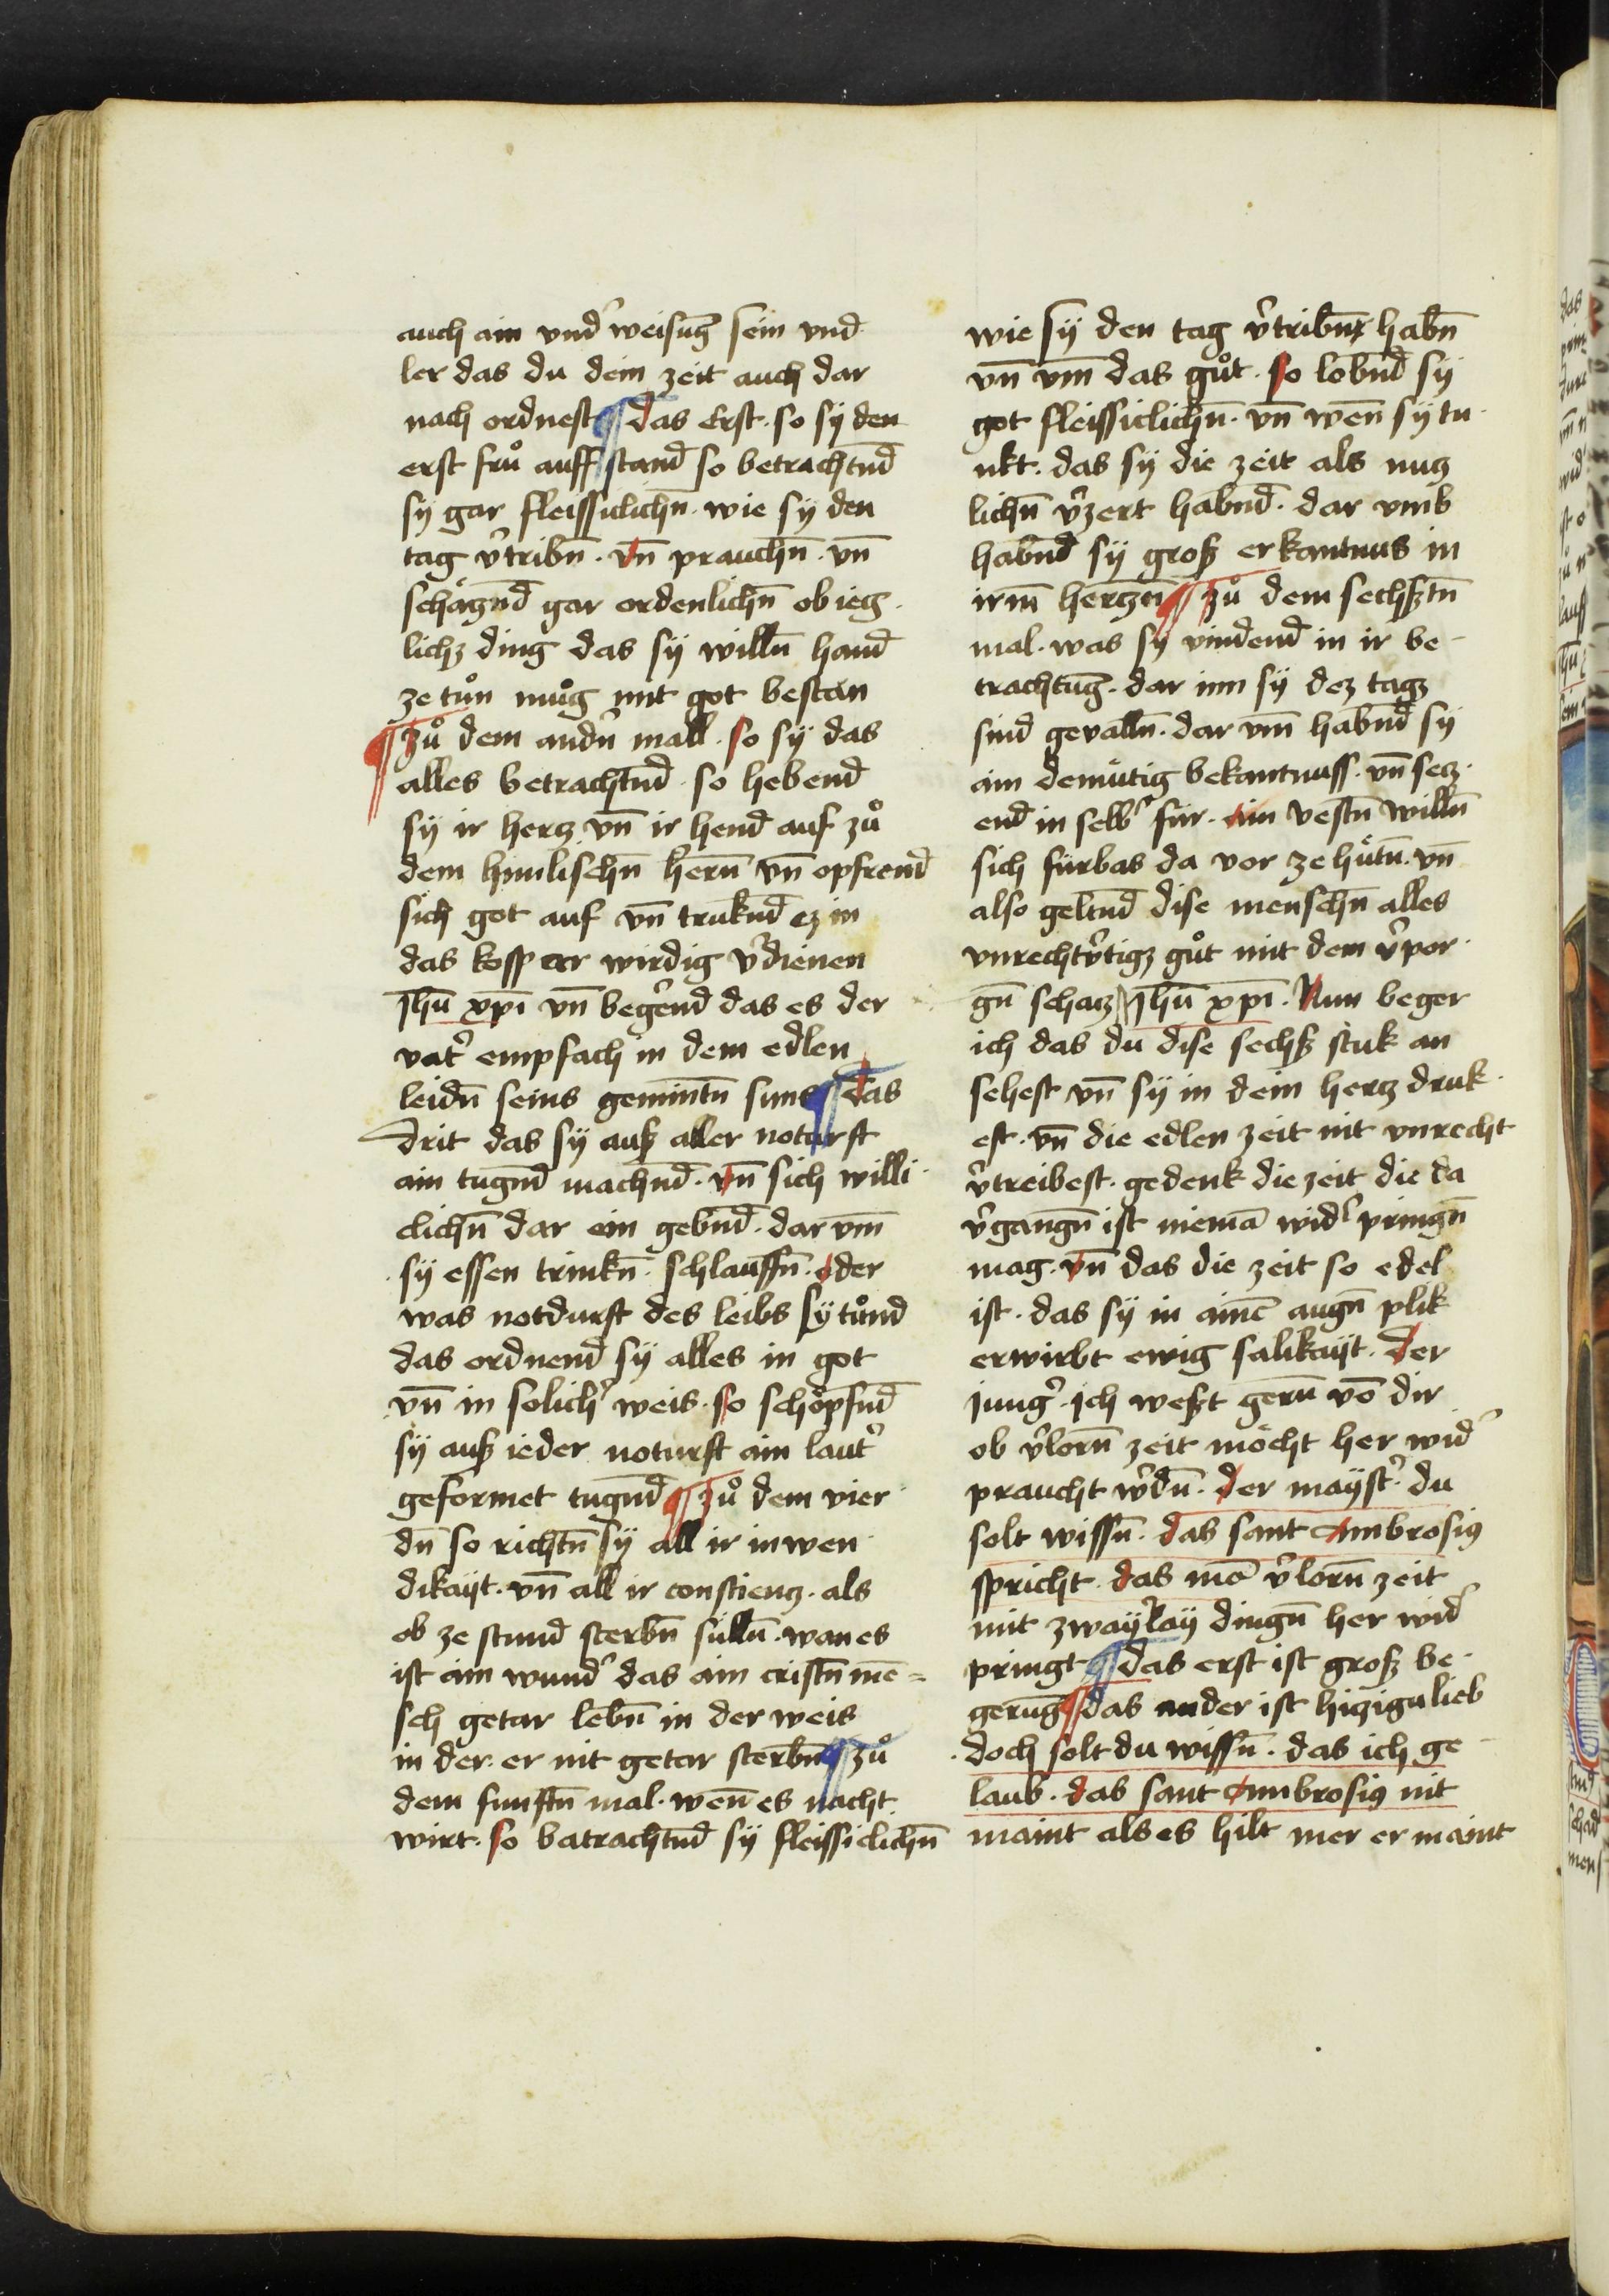 auch ain vnd̉ weisūg sein vnd
ler das du dein zeit auch dar
nach ordnest ¶ das Erst · so sÿ den
erst frů auff stand so betrachtn̄d
sÿ gar fleissiclichn̄ · wie sÿ den
tag v̉tribn̄ · vn̄ prauchn̄ · vn̄
schäczn̄d gar ordenlichn̄ ob iecz
lichz ding das sÿ willn̄ hand
ze tůn mug mit got bestan
¶ zů dem andn̉ mall · so sÿ das
alles betrachtn̄d · so hebend
sÿ ir hercz vn̄ ir hend auf zů
dem himlischn̄ hern̄ vn̄ opfrend
sich got auf vn̄ trukn̄d ez in
das kosp err wirdig v̉dienen
Jhū xp̄i vn̄ beger̄nd das es der
vat̉ empfach in dem edlen
leidn̄ seins gemintn̄ suns ¶ das
drit das sÿ auß aller noturft
ain tugn̄d machn̄d · vn̄ sich willi
clichn̄ dar ein gebn̄d · dar vm̄
sÿ essen trinkn̄ · schlauffn̄ · oder
was notdurft des leibs sÿ tůnd
das ordnend sÿ alles in got
vn̄ in solich̉ weis · so schöpfn̄d
sÿ auß ieder noturft ain laut̉
geformet tugn̄d ¶ zů dem vier
dn̄ so richtn̄ sÿ all ir inwen
dikaÿt · vn̄ all ir conscienz · als
ob ze stund sterbn̄ sulln̄ · wan es
ist ain wund̉ das ain cristn̄ mē=
sch getar lebn̄ in der weis
in der er nit getar sterbn̄ ¶ zů
dem funftn̄ mal · wen̄ es nacht
wirt · so batrachtn̄d sÿ fleissiclichn̄
wie sÿ den tag v̉tribn̄ habn̄
vn̄ vm̄ das gůt · so lobn̄d sÿ
got fleissiclichn̄ · vn̄ wen̄ sÿ tu
nkt · das sÿ die zeit als nucz
lichn̄ v̉zert habn̄d · dar vmb
habn̄d sÿ groß erkantnus in
irm̄ herczn̄ ¶ zů dem sechßtn̄
mal · was sÿ vindend in ir be-
trachtūg · dar inn sÿ dez tagz
sind gevalln̄ · dar vm̄ habn̄d sÿ
ain demütig bekantnuss · vn̄ secz
end in selb̉ für · ain vestn̄ willn̄
sich fürbas da vor ze hütn̄ · vn̄
also geltn̄d dise menschn̄ alles
vnrechtv̉tigz gůt mit dem v̉por
gn̄ schacz Jhū xp̄i · Nun beger
ich das du dise sechß stuk an
sehest vn̄ sÿ in dein hercz druk
est · vn̄ die edlen zeit nit vnrecht
v̉treibest · gedenk die zeit die da
v̉gangn̄ ist niemā wid̉ pringn̄
mag · vn̄ das die zeit so edel
ist · das sÿ in ainē augn̄ plik
erwirbt ewig salikaÿt · der
jung̉ · ich weßt gern̄ vō dir
ob v̉lorn̄ zeit möcht her wid̉
praucht w̉dn̄ · der maÿst̉ · du
solt wissn̄ · das sant Ambrosiꝰ
spricht · das mā v̉lorn̄ zeit
mit zwaÿ̉laÿ dingn̄ her wid̉
pringt ¶ das erst ist groß be
gerūg ¶ das ander ist hiczigu lieb
doch solt du wissn̄ · das ich ge
laub · das sant Ambrosiꝰ nit
maint als es hilt mer er maint